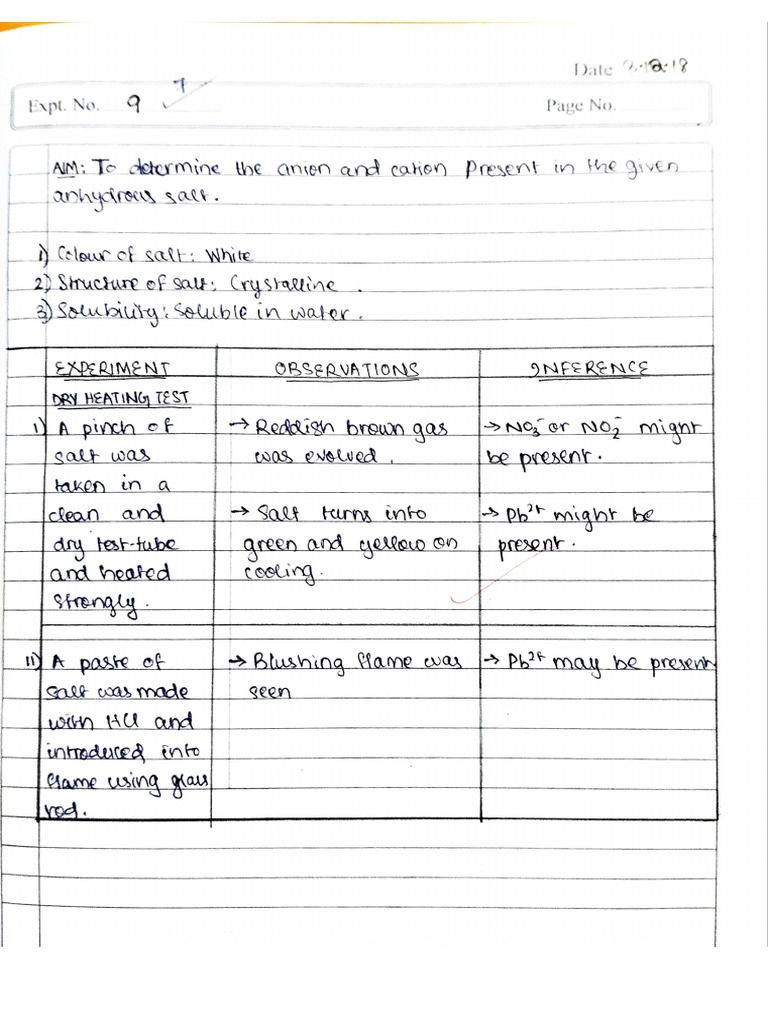 Date 3.12.18
7
Expt. No. 9
Page No.
AIM: To determine the anion and cation present in the given
anhydrous salt.
1) Colour of salt: White
2) Structure of salt: Crystalline.
3) Solubility: Soluble in water.
EXPERIMENT OBSERVATIONS INFERENCE
DRY HEATING TEST
I) A pinch of
salt was
taken in a
clean and
dry test-tube
and heated
strongly.
→ Reddish brown gas
was evolved.
→ Salt turns into
green and yellow on
cooling.
→ NO₃⁻ or NO₂⁻ might
be present.
→ Pb²⁺ might be
present.
II) A paste of
salt was made
with HCl and
introduced into
flame using glass
rod.
→ Blushing flame was
seen
→ Pb²⁺ may be present